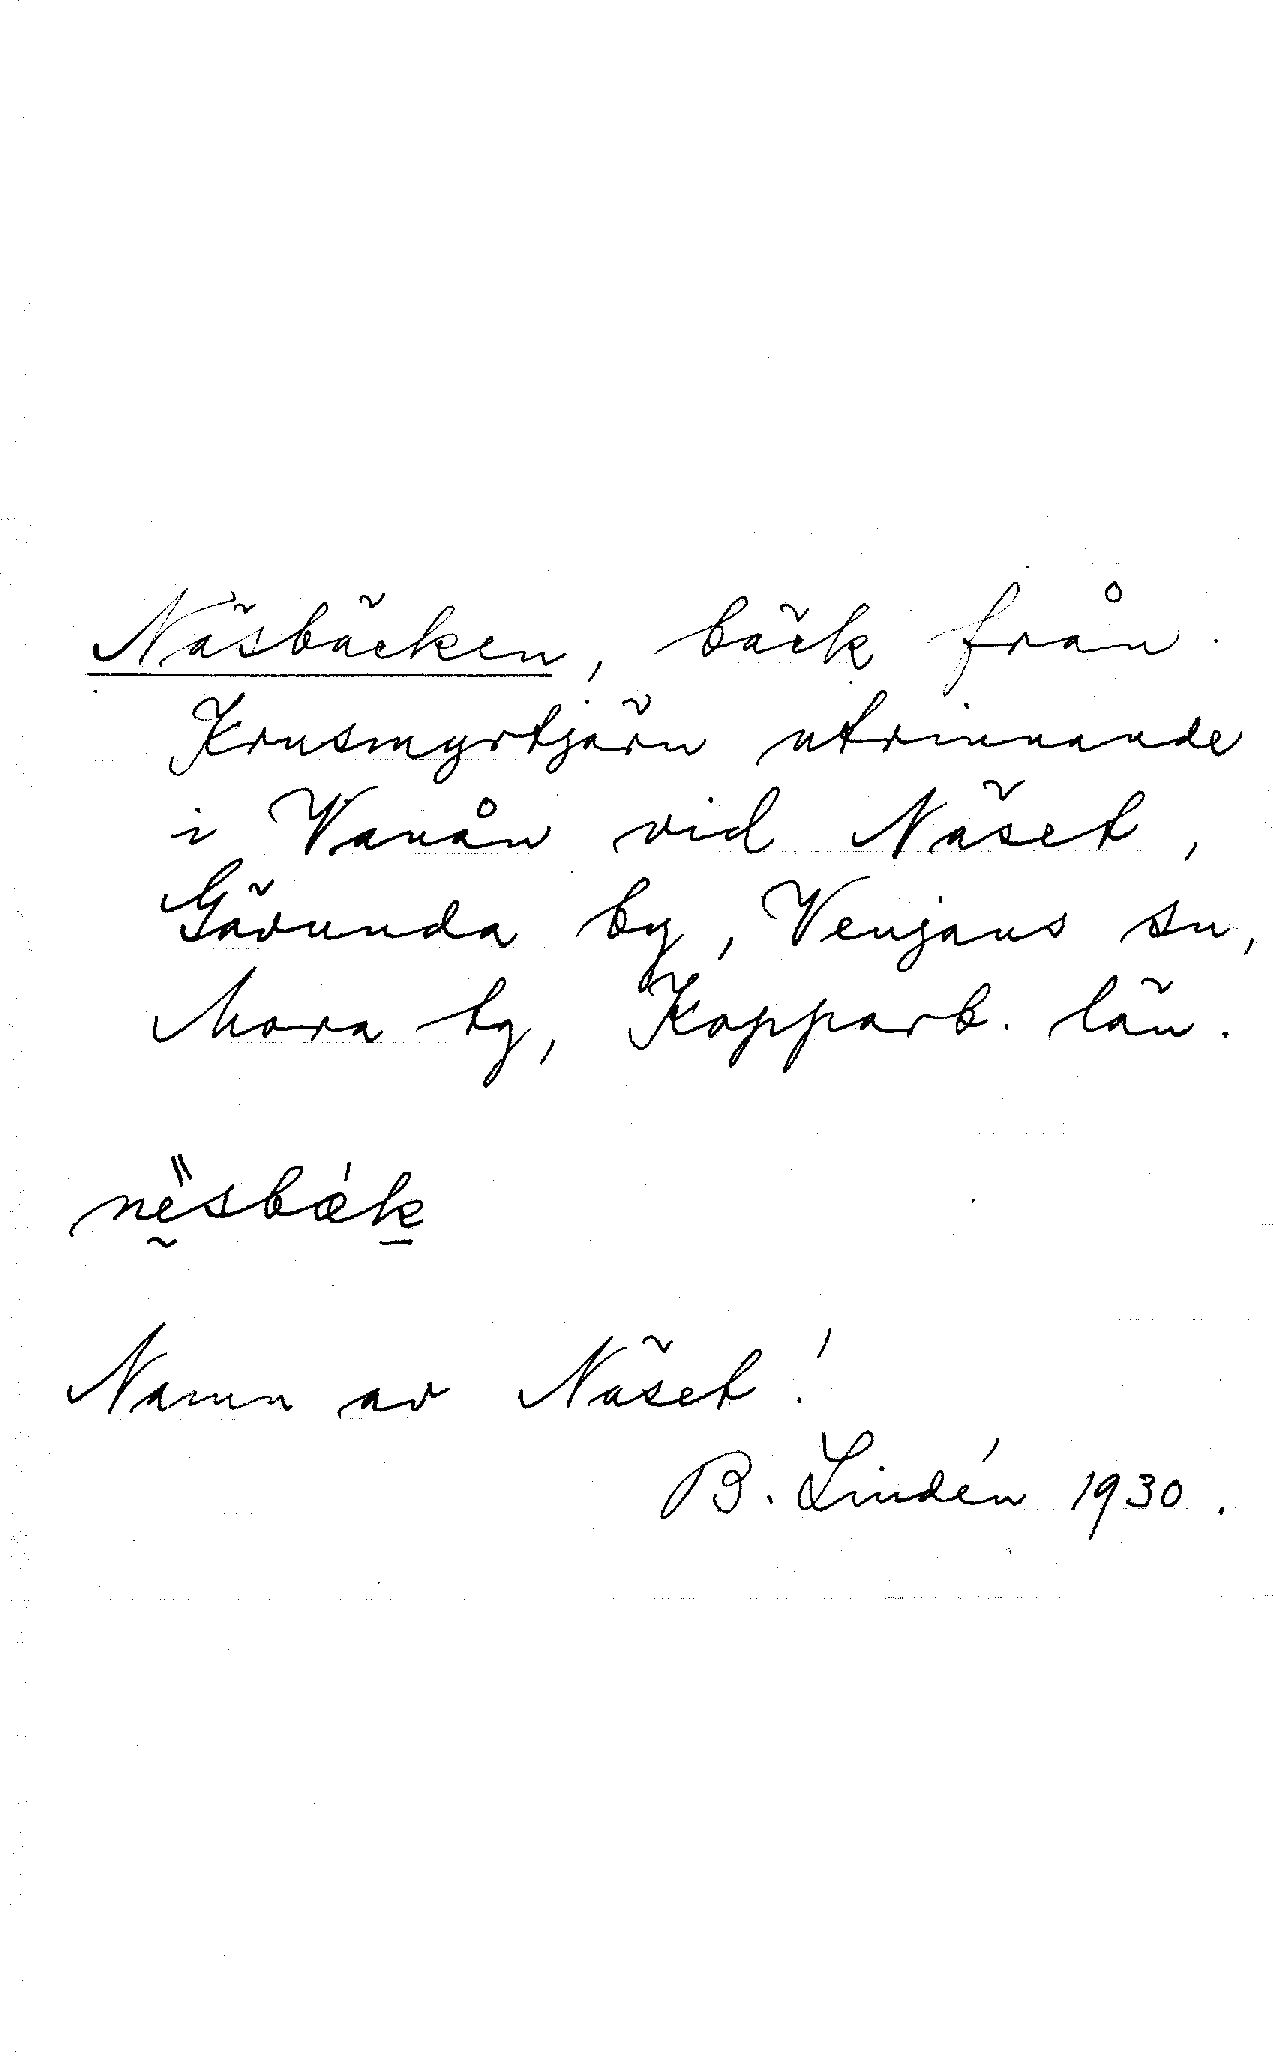 Näsbäcken, bäck från
Krusmyrtjärn utrinnande
i Vanån vid Näset,
Gävunda by, Venjans sn,
Mora tg, Kopparb. län.
nèsbǽk
Namn av Näset!
B. Lindén 1930.